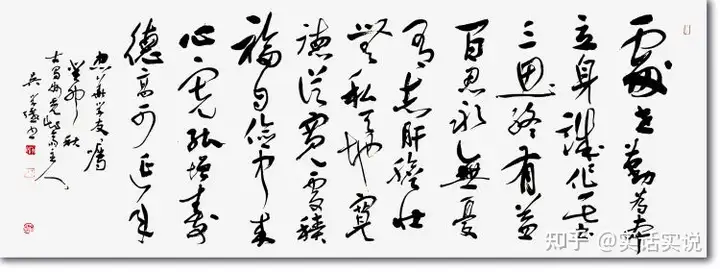 處世勤為本
立身誠作基
三思終有益
百忍永無憂
有志肝膽壯
無私天地寬
德從寬處積
福自儉中來
心寬能增壽
德高可延年
學友囑
秋
主人
知乎 @实话实说